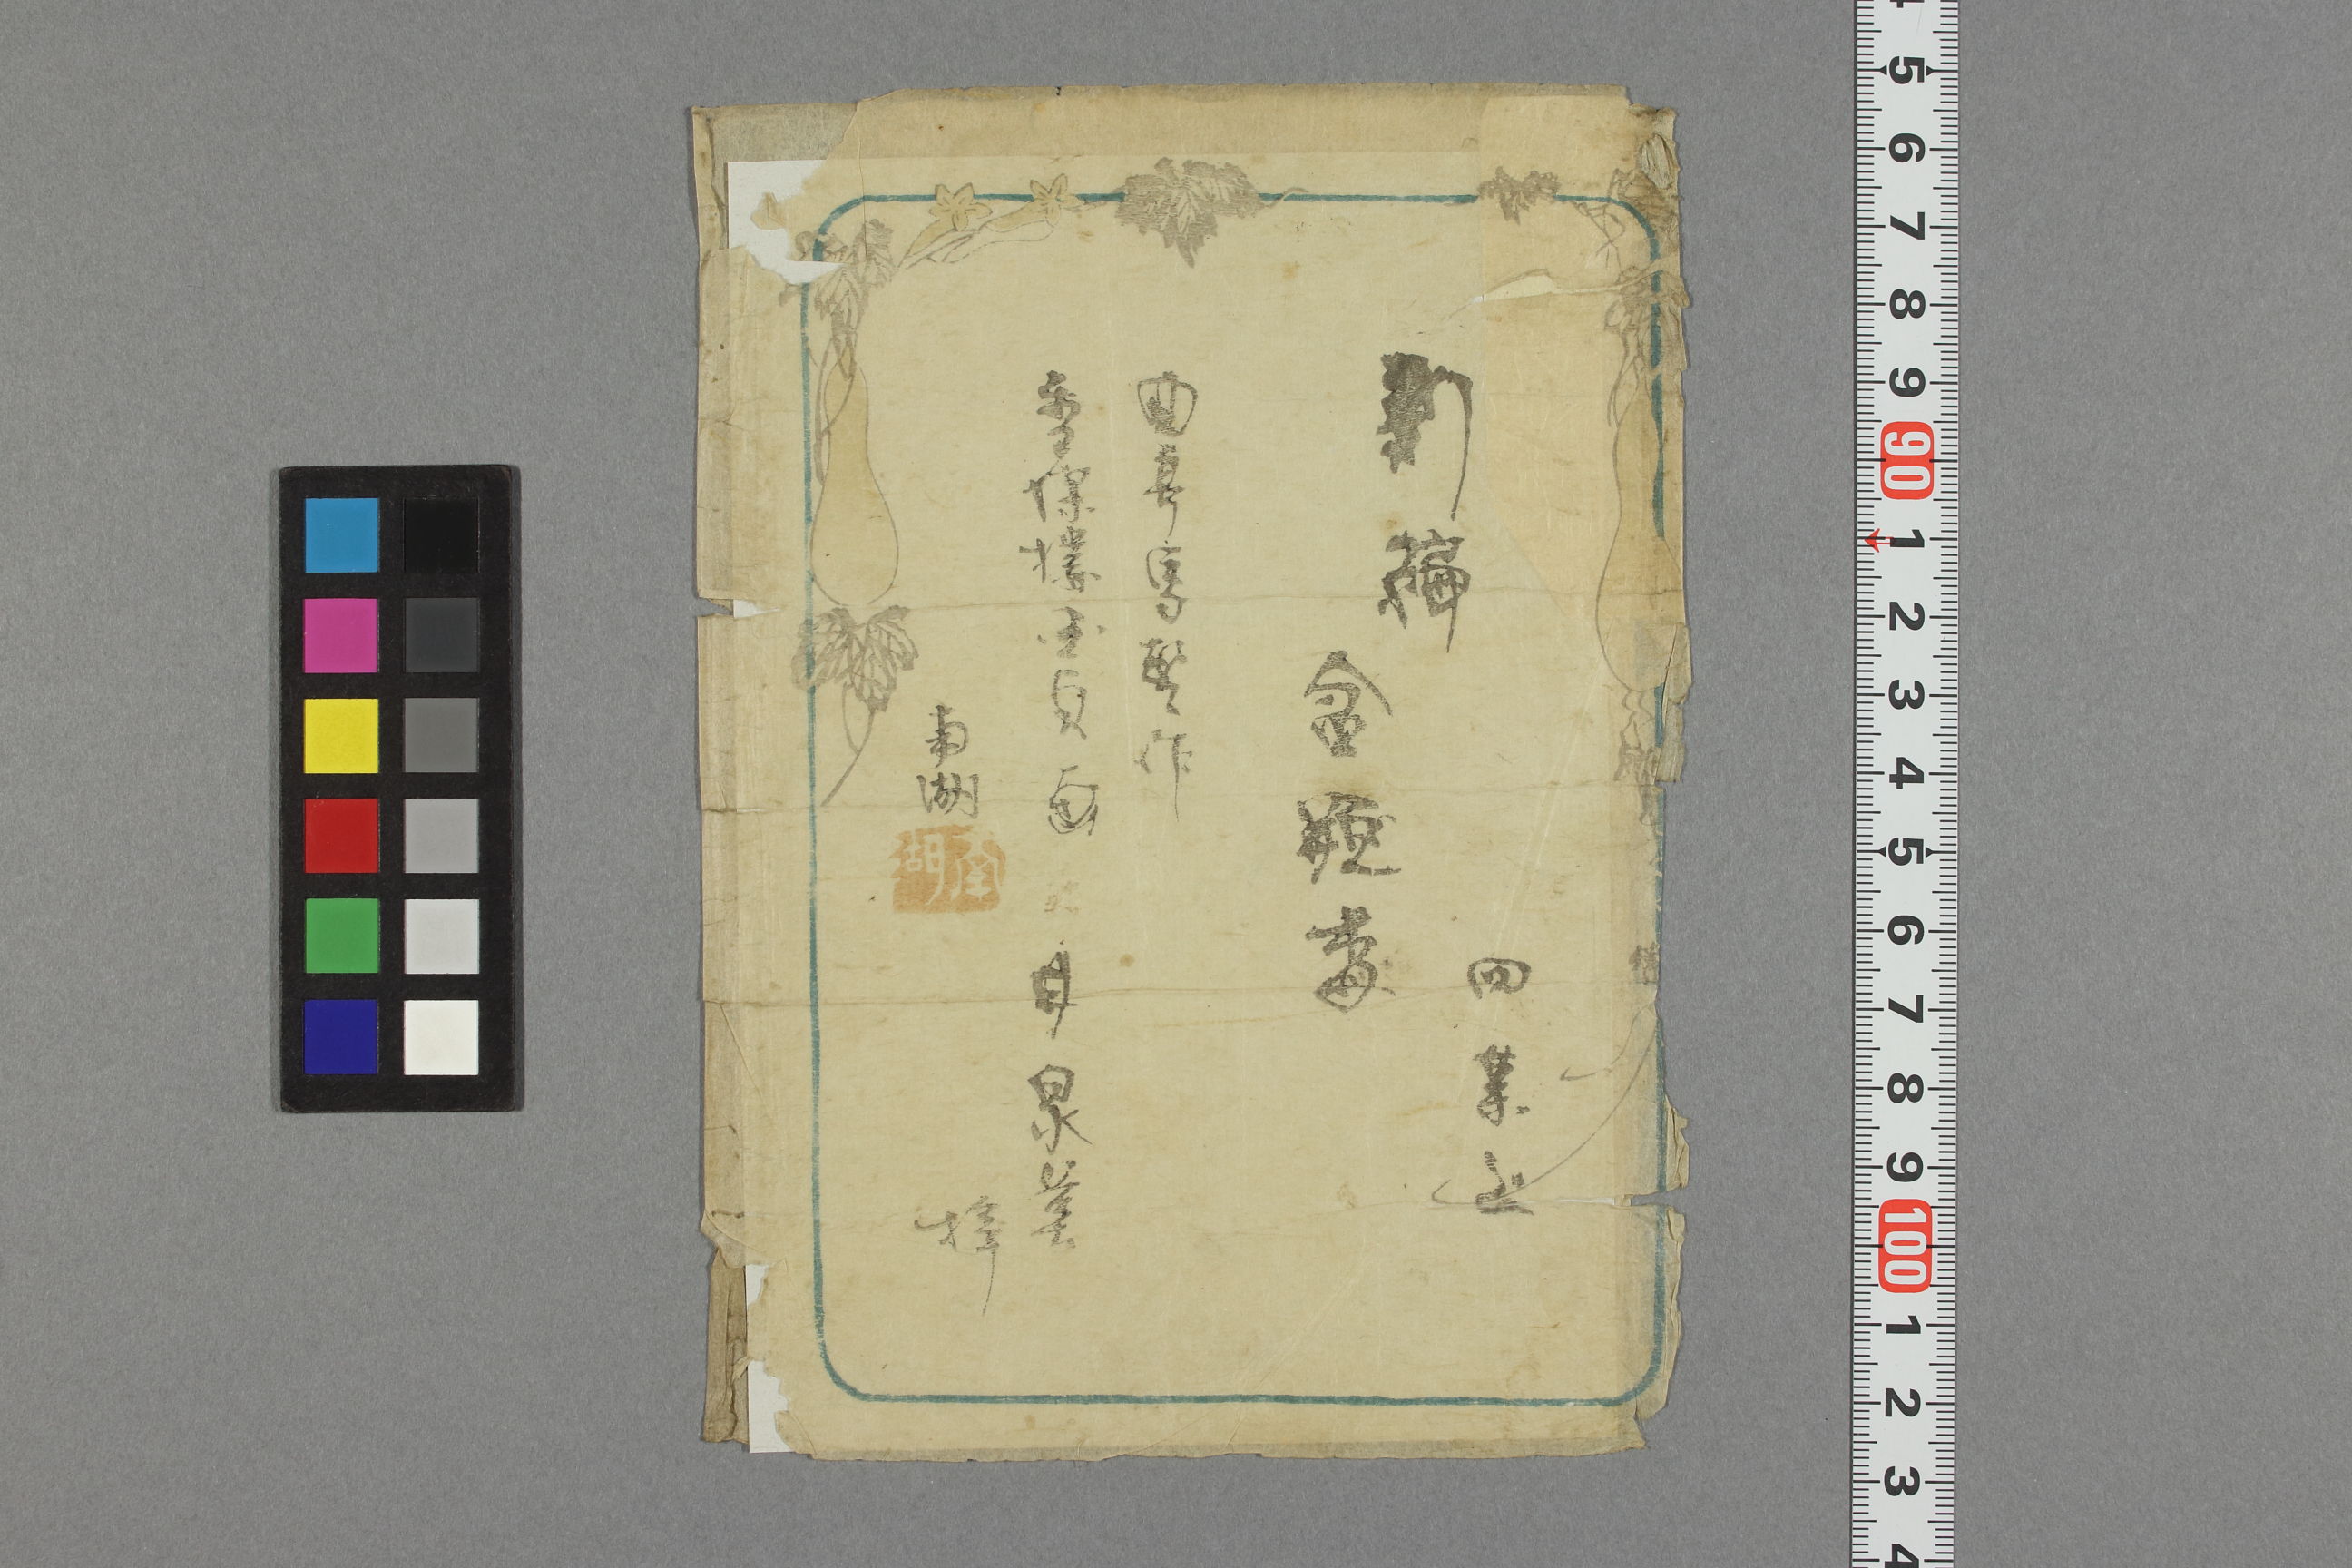 四集上
新編
金瓶梅
曲亭馬琴作
香蝶楼国貞画
甘泉堂
梓
南湖
4 5 6 7 8 9 90 1 2 3 4 5 6 7 8 9 100 1 2 3 4